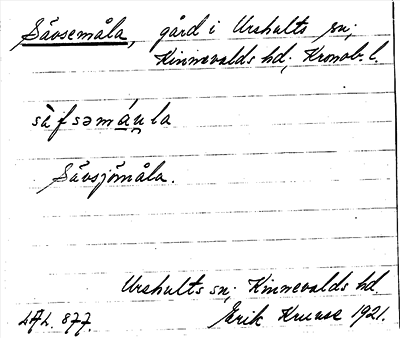 Sävsemåla, gård i Urshults sn;
Kinnevalds hd; Kronob. l.
säfsəmáu̯la
Sävsjömåla.
Urshults sn; Kinnevalds hd
LAL. 877. Erik Kruuse 1921.